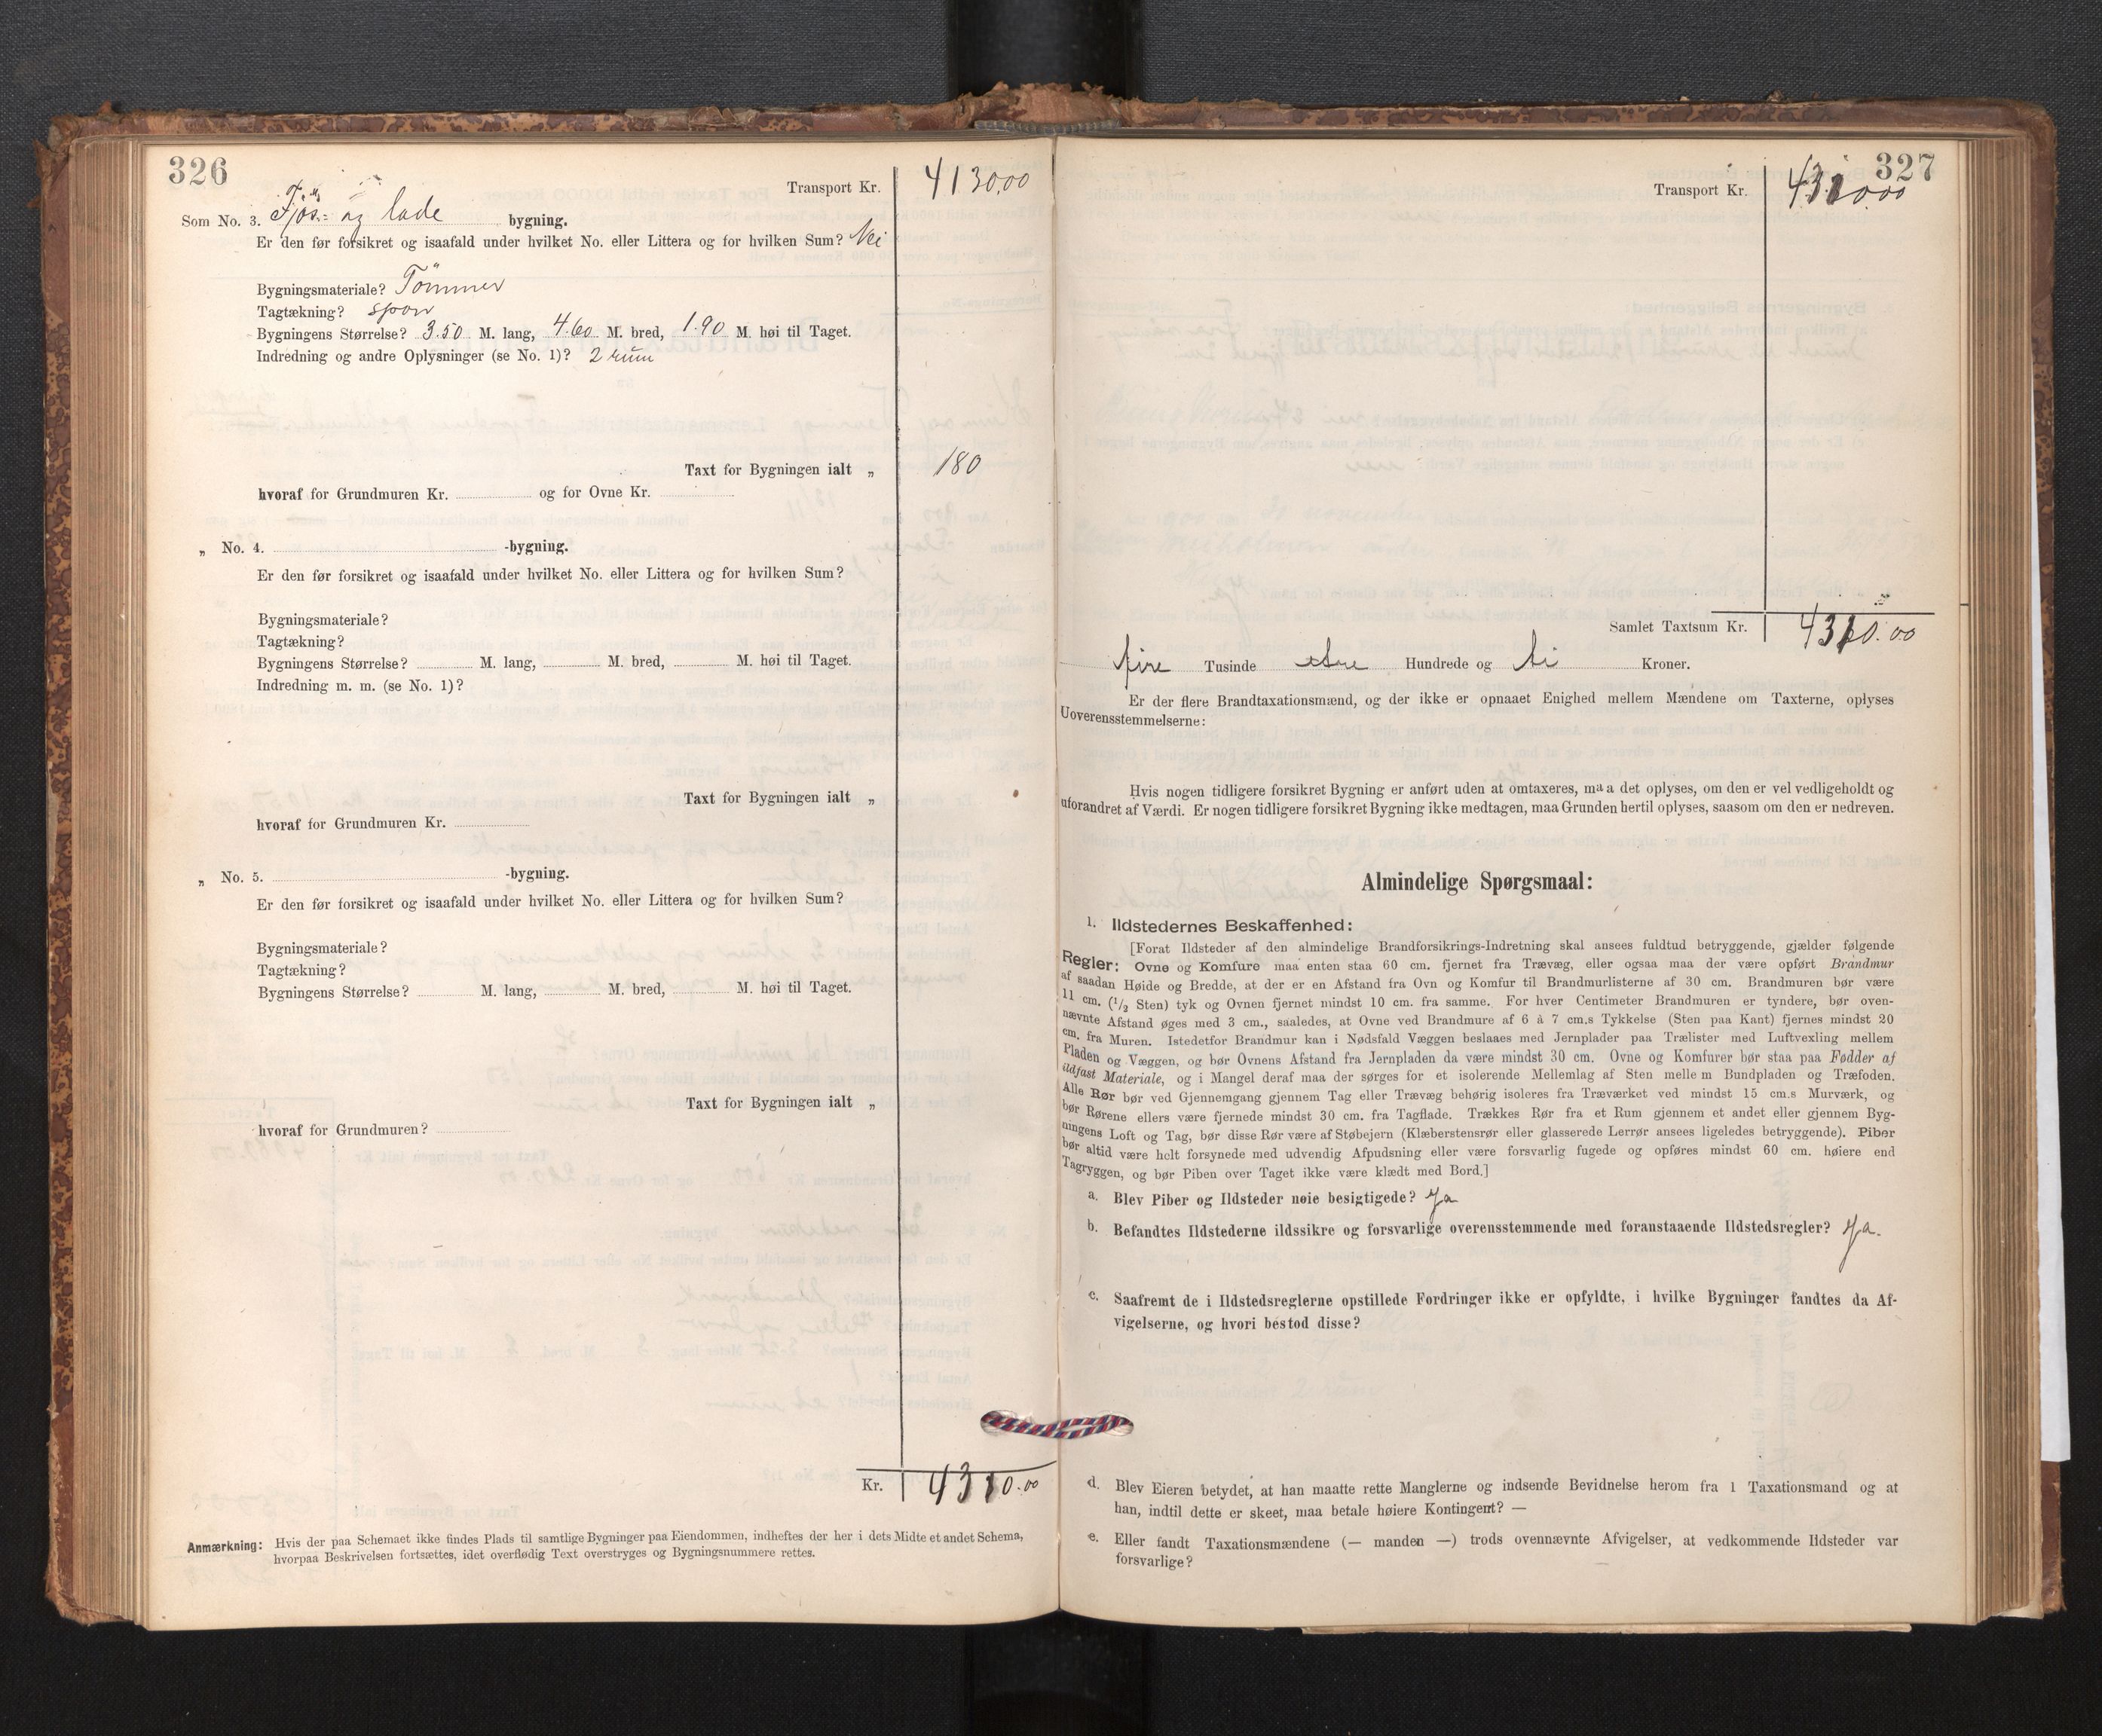 326
Transport Kr. 4130.00
Som No. 3. Fjøs- og lade bygning.
Er den før forsikret og isaafald under hvilket No. eller Littera og for hvilken Sum? Nei
Bygningsmateriale? Tömmer
Tagtækning? spon
Bygningens Størrelse? 3.50 M. lang, 4.60 M. bred, 1.90 M. høi til Taget.
Indredning og andre Oplysninger (se No. 1)? 2 rum
Taxt for Bygningen ialt „ 180
hvoraf for Grundmuren Kr. og for Ovne Kr.
„ No. 4. -bygning.
Er den før forsikret og isaafald under hvilket No. eller Littera og for hvilken Sum?
Bygningsmateriale?
Tagtækning?
Bygningens Størrelse? M. lang, M. bred, M. høi til Taget.
Indredning m. m. (se No. 1)?
Taxt for Bygningen ialt „
hvoraf for Grundmuren Kr.
„ No. 5. -bygning.
Er den før forsikret og isaafald under hvilket No. eller Littera og for hvilken Sum?
Bygningsmateriale?
Tagtækning?
Bygningens Størrelse? M. lang, M. bred, M. høi til Taget.
Taxt for Bygningen ialt „
hvoraf for Grundmuren?
Kr. 4310.00
Anmærkning: Hvis der paa Schemaet ikke findes Plads til samtlige Bygninger paa Eiendommen, indheftes der her i dets Midte et andet Schema,
hvorpaa Beskrivelsen fortsættes, idet overflødig Text overstryges og Bygningsnummere rettes.
327
Transport Kr. 4310.00
Samlet Taxtsum Kr. 4310.00
fire Tusinde tre Hundrede og ti Kroner.
Er der flere Brandtaxationsmænd, og der ikke er opnaaet Enighed mellem Mændene om Taxterne, oplyses
Uoverensstemmelserne:
Hvis nogen tidligere forsikret Bygning er anført uden at omtaxeres, maa det oplyses, om den er vel vedligeholdt og
uforandret af Værdi. Er nogen tidligere forsikret Bygning ikke medtagen, maa Grunden hertil oplyses, saasom om den er nedreven.
Almindelige Spørgsmaal:
1. Ildstedernes Beskaffenhed:
[Forat Ildsteder af den almindelige Brandforsikrings-Indretning skal ansees fuldtud betryggende, gjælder følgende
Regler: Ovne og Komfure maa enten staa 60 cm. fjernet fra Trævæg, eller ogsaa maa der være opført Brandmur
af saadan Høide og Bredde, at der er en Afstand fra Ovn og Komfur til Brandmurlisterne af 30 cm. Brandmuren bør være
11 cm. (1/2 Sten) tyk og Ovnen fjernet mindst 10 cm. fra samme. For hver Centimeter Brandmuren er tyndere, bør oven-
nævnte Afstand øges med 3 cm., saaledes, at Ovne ved Brandmure af 6 à 7 cm.s Tykkelse (Sten paa Kant) fjernes mindst 20
cm. fra Muren. Istedetfor Brandmur kan i Nødsfald Væggen beslaaes med Jernplader paa Trælister med Luftvexling mellem
Pladen og Væggen, og bør Ovnens Afstand fra Jernpladen da være mindst 30 cm. Ovne og Komfurer bør staa paa Fødder af
ildfast Materiale, og i Mangel deraf maa der sørges for et isolerende Mellemlag af Sten mellem Bundpladen og Træfoden.
Alle Rør bør ved Gjennemgang gjennem Tag eller Trævæg behørig isoleres fra Træværket ved mindst 15 cm.s Murværk, og
bør Rørene ellers være fjernede mindst 30 cm. fra Tagflade. Trækkes Rør fra et Rum gjennem et andet eller gjennem Byg-
ningens Loft og Tag, bør disse Rør være af Støbejern (Klæberstensrør eller glasserede Lerrør ansees ligeledes betryggende). Piber
bør altid være helt forsynede med udvendig Afpudsning eller være forsvarlig fugede og opføres mindst 60 cm. høiere end
Tagryggen, og bør Piben over Taget ikke være klædt med Bord.]
a. Blev Piber og Ildsteder nøie besigtigede? Ja
b. Befandtes Ildstederne ildssikre og forsvarlige overensstemmende med foranstaaende Ildstedsregler? Ja.
c. Saafremt de i Ildstedsreglerne opstillede Fordringer ikke er opfyldte, i hvilke Bygninger fandtes da Af-
vigelserne, og hvori bestod disse?
d. Blev Eieren betydet, at han maatte rette Manglerne og indsende Bevidnelse herom fra 1 Taxationsmand og at
han, indtil dette er skeet, maa betale høiere Kontingent? —
e. Eller fandt Taxationsmændene (— manden —) trods ovennævnte Afvigelser, at vedkommende Ildsteder var
forsvarlige?